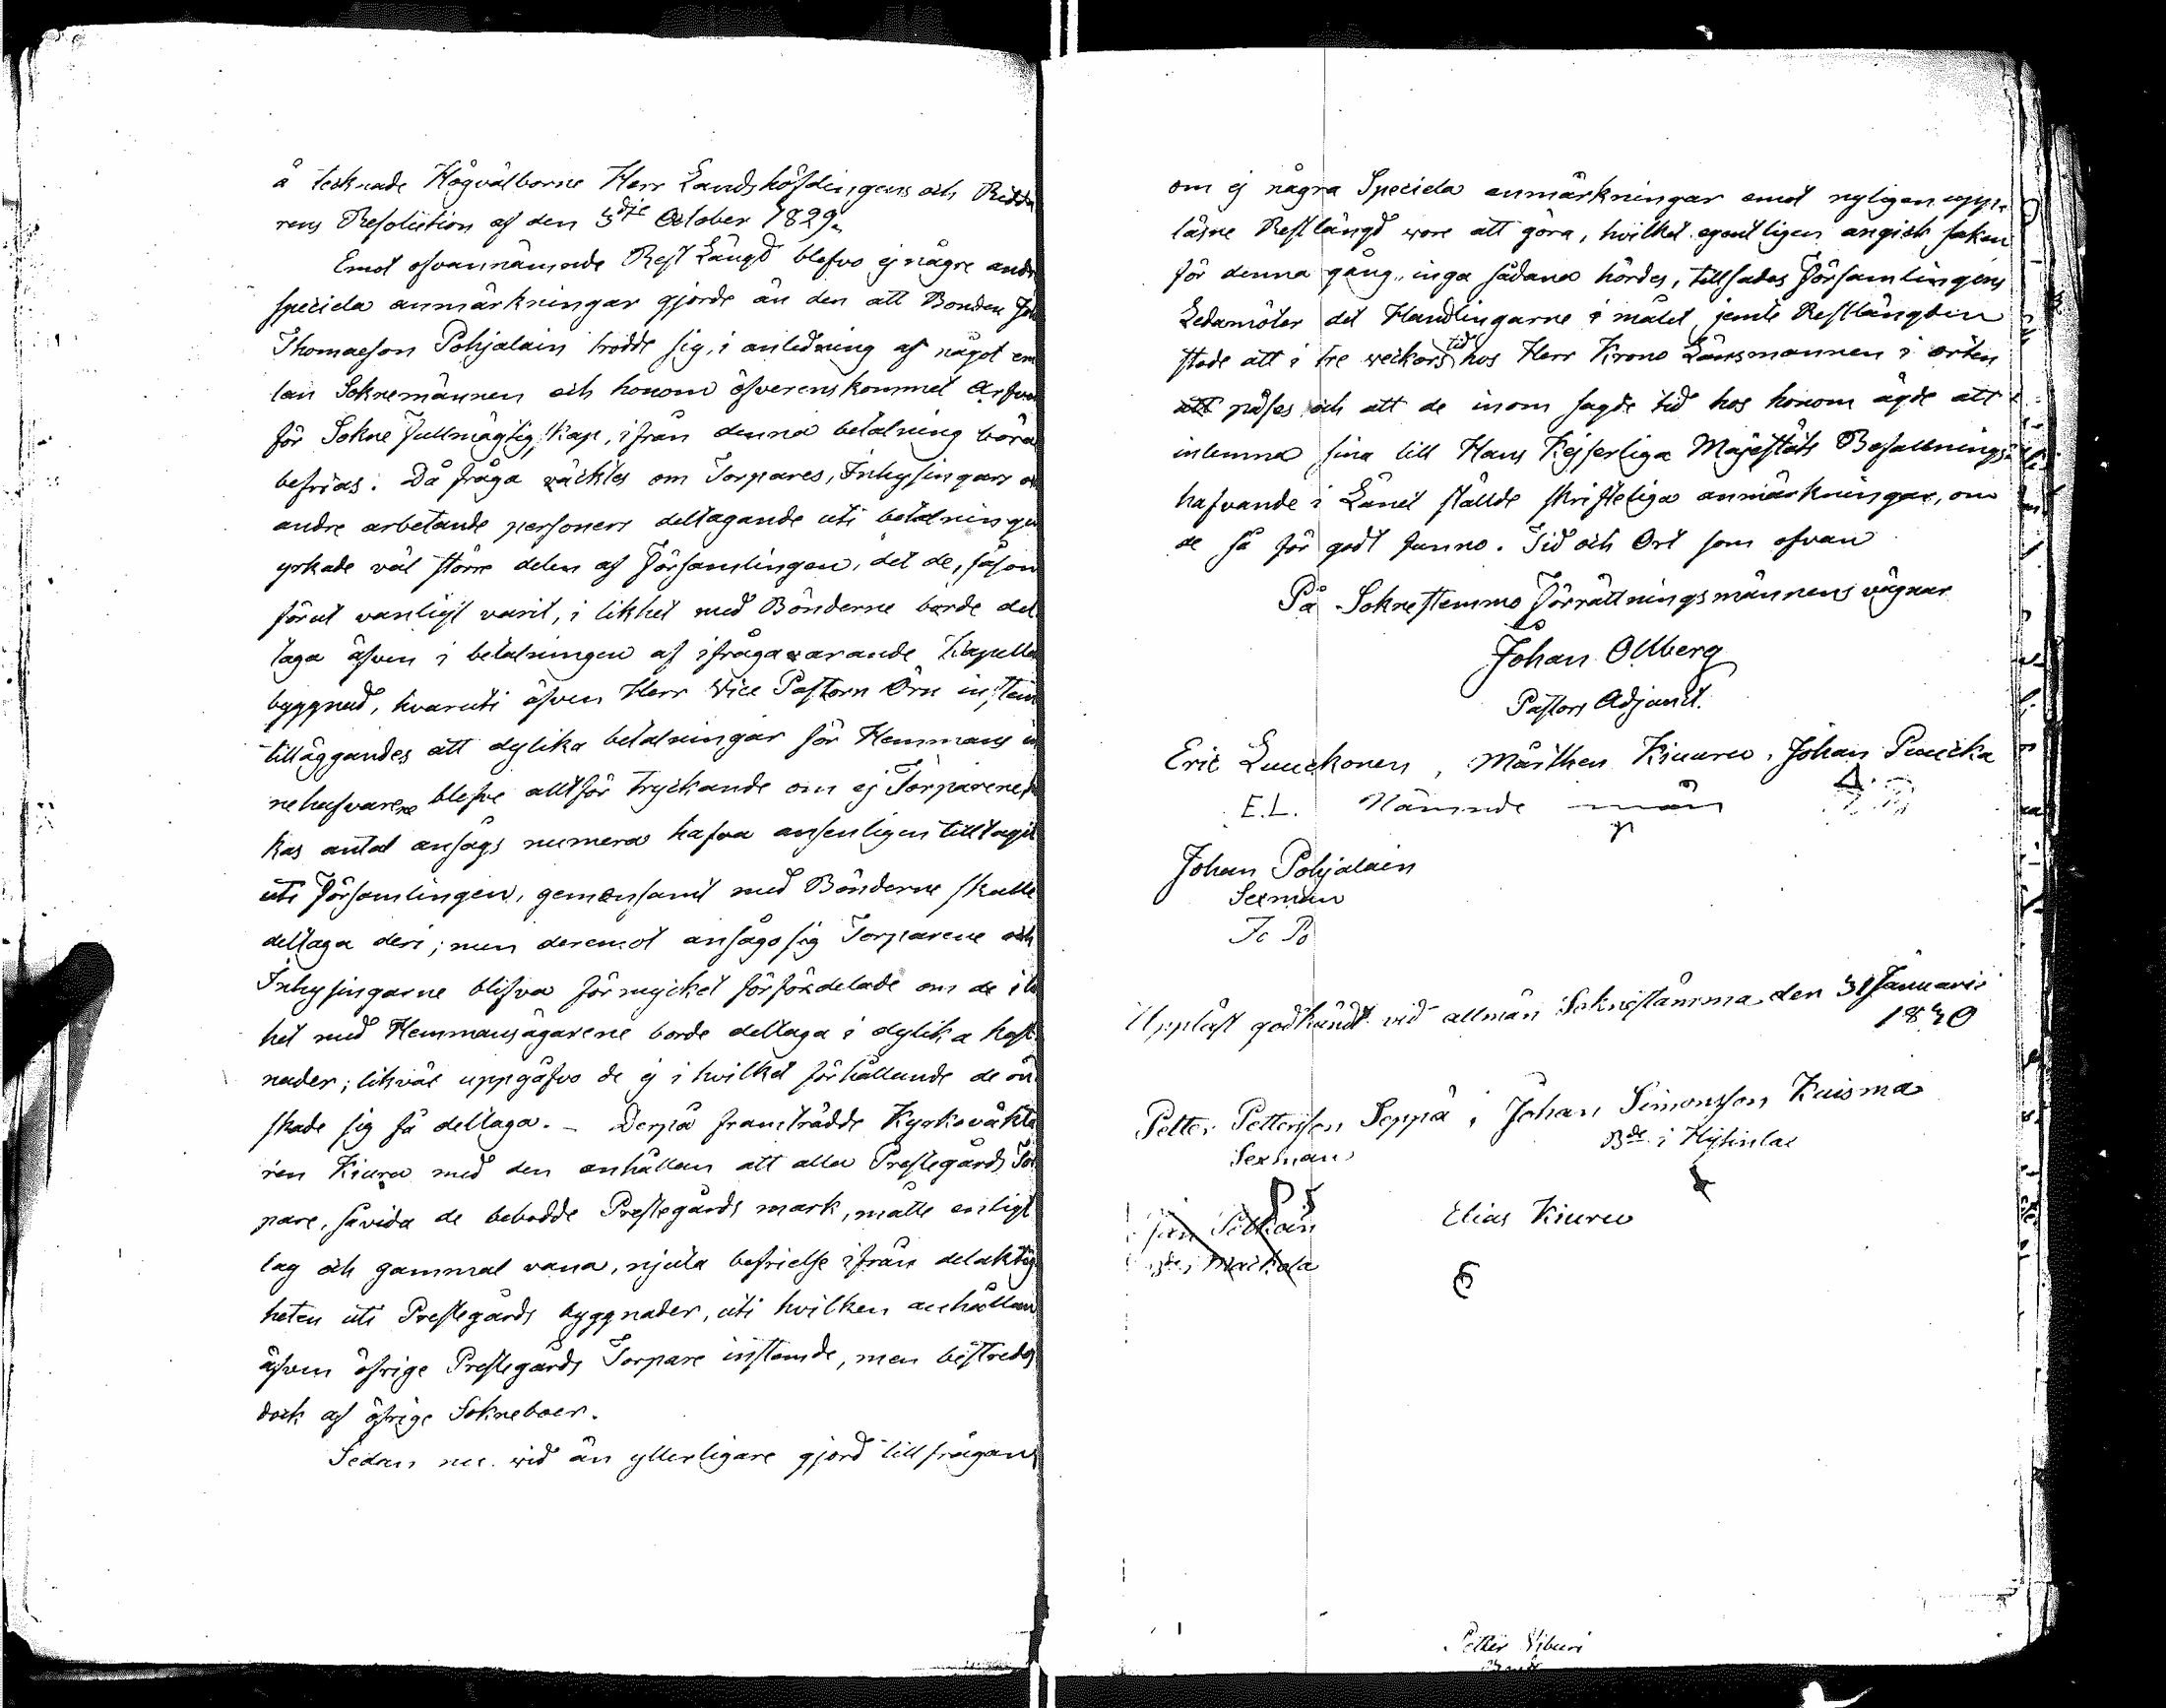 å tecknade Högvälborne Herr Landshöfdingens och Ridda
rens Resolution af den 3die October 1829.
Emot ofvannämnde Rest Längd blefvo ej någre andr
speciela anmärkningar gjorde än den att Bonden Joh
Thomasson Pohjalain trodde sig, i anledning af något em
lan Soknemännen och honom öfverenskommet Arfvo
för Sokne Fullmägtig Kap, ifrån denna betalning böra
befrias. Då fråga väcktes om Torpares, Inhysingars o
andre arbetande personers deltagande uti betalninge
yrkade väl större delen af Församlingen, det de, såsom
förut vanligt varit, i likhet med Bönderne borde del
taga äfven i betalningen af ifrågavarande Kapells
byggnad, hvaruti äfven Herr Vice Pastorn Örn instäm
tilläggandes att dylika betalningar för Hemmans in
nehafvarene blefve alltför tryckande om ej Torparene,
kas antal ansågs numera hafva ansenligen tilltagit
uti Församlingen, gemensamt med Bönderne skulle
deltaga deri; men deremot ansågo sig Torparene och
Inhysingarne blifva för mycket förfördelade om de i lik
het med Hemmansägarene borde deltaga i dylika kost
nader; likväl uppgåfvo de ej i hvilket förhållande de ön
skade sig få deltaga. – Derpå framträdde Kyrkovakta
ren Kiuru med den anhållan att alla Prestegårds Tor
pare, såvida de bebodde Prestegårds mark, måtte enligt
lag och gammal vana, njuta befrielse ifrån delaktig
heten uti Prestegårds byggnader, uti hvilken anhållan
äfven öfrige Prestegårds Torpare instämde, men bestreds
dock af öfrige Sokneboer.
Sedan nu vid än ytterligare gjord tillfrågan
om ej några Speciela anmärkningar emot nyligen uppl
läsne Restlängd vore att göra, hvilket egentligen angick saken
för denna gång, inga sådana hördes, tillsades Församlingens
Ledamöter det Handlingarne i målet jemte Restlängden
stode att i tre veckors tid hos Herr Krono Länsmannen i orten
att påses och att de inom sagde tid hos honom ägde att
inlemna sina till Hans Kejserliga Majestäts Befallnings
hafvande i Länet ställde skrifteliga anmärkningar, om
de så för godt funno. Tid och Ort som ofvan
På Soknestemmo Förrättningsmännens vägnar
Johan Ollberg
Pastors Adjunct.
Eric Luuckonen, Mårthen Kiuuru, Johan Puucka
E.L. Nämnde män
Johan Pohjalain
Sexman
Jo Po
Uppläst godkändt vid allmän Soknestämma den 31 Januarii
1830
Petter Pettersson Seppä, Johan Simonsson Kuisma
Sexman Bde i
Elias Kiuru
Petter